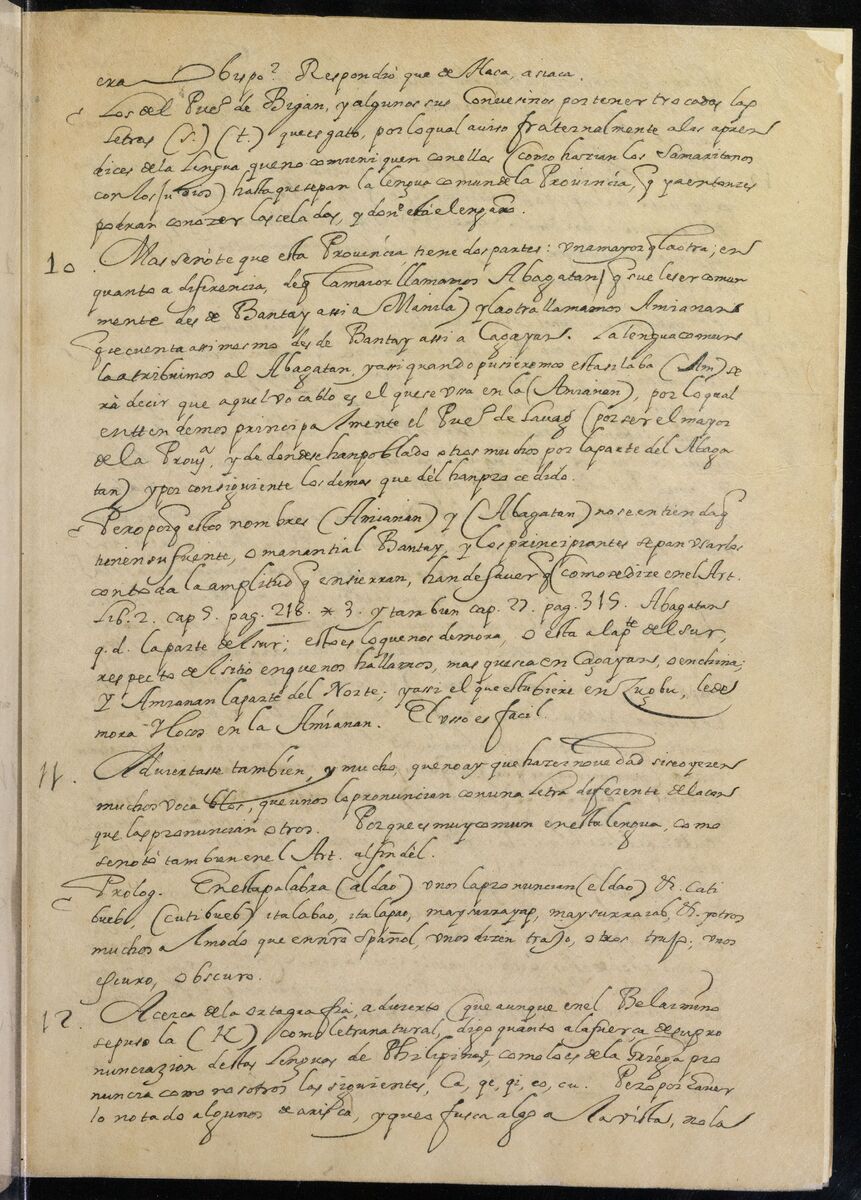 era Obispo? Respondio que de Maca, asiaca.
Los del Pueo de Bigan, y algunos sus Convesinos por tener trocadas las
letras (s.) (t.) que es gato, por lo qual aviso fraternalmente a los apren
dices de la Lengua que no comuniquen con ellos (como hazian los Samaritanos
con los judios) hasta que sepan la lengua comun de la Provincia, q ya entonzes
podran conozer las celadas, y donde esta el engaño.
10. Mas se note que esta Provincia tiene dos partes: una mayor q la otra; en
quanto a diferencia, de q la maior llamamos Abagatan (q suele ser comun
mente des de Bantay assi a Manila) y la otra llamamos Amianan
que cuenta assi mesmo des de Bantay assi a Cagayan. La lengua comun
la atribuimos al Abagatan, y assi quando pusieremos esta silaba (Am) se
rà decir que aquel vocablo es el que se ussa en la (Amianan), por lo qual
entendemos principalmente el Pueo de Lauag (por ser el mayor
de la Prova, y de donde se han poblado otros muchos por la parte del Abaga
tan) y por consiguiente los demas que dèl han procedido.
Pero porq estos nombres (Amianan) y (Abagatan) no se entienda q
tienen su fuente, o manantial Bantay, y los principiantes sepan usarlos
con toda la amplitud q ensierran, han de saver q (como se dize en el Art.
Lib. 2. cap 5. pag. 218. * 3. y tambien cap. 27. pag. 315. Abagatan
q. d. la parte del sur; esto es lo que nos demora, o esta a la pte del sur,
respecto del sitio en que nos hallamos, mas que sea en Cagayan, o en china;
y Amianan la parte del Norte; y assi el que estubiere en Zugbu, le de
mora Ylocos en la Amianan. El usso es facil.
11. Adviertasse tambien, y mucho, que no ay que hazer novedad si se oyeren
muchos vocablos, que unos lo pronuncian con una letra diferente de la con
que las pronuncian otros. Porque es muy comun en esta lengua, como
se notò tambien en el Art. al fin dèl.
Prolog. En esta palabra (aldao) unos la pronuncian (eldao) &. cati
bueb, (cutibueb) italabao, italapao, maysurrayap, maysurraiab, &. y otros
muchos al modo que en nro Español, unos dizen trajo, otros trujo; unos
escuro, obscuro.
12. Acerca de la ortografia, advierto (que aunque en el Belarmino
se puso la (K) como letra natural, digo quanto a la fuerca de su pro
nunciazion destas Lenguas de Philipinas, como lo es de la Griega pro
nuncia como nosotros las siguientes, Ca, qe, qi, co, cu. Pero por haver
lo notado algunos de arisca, y que ofusca algo a la vista, no la